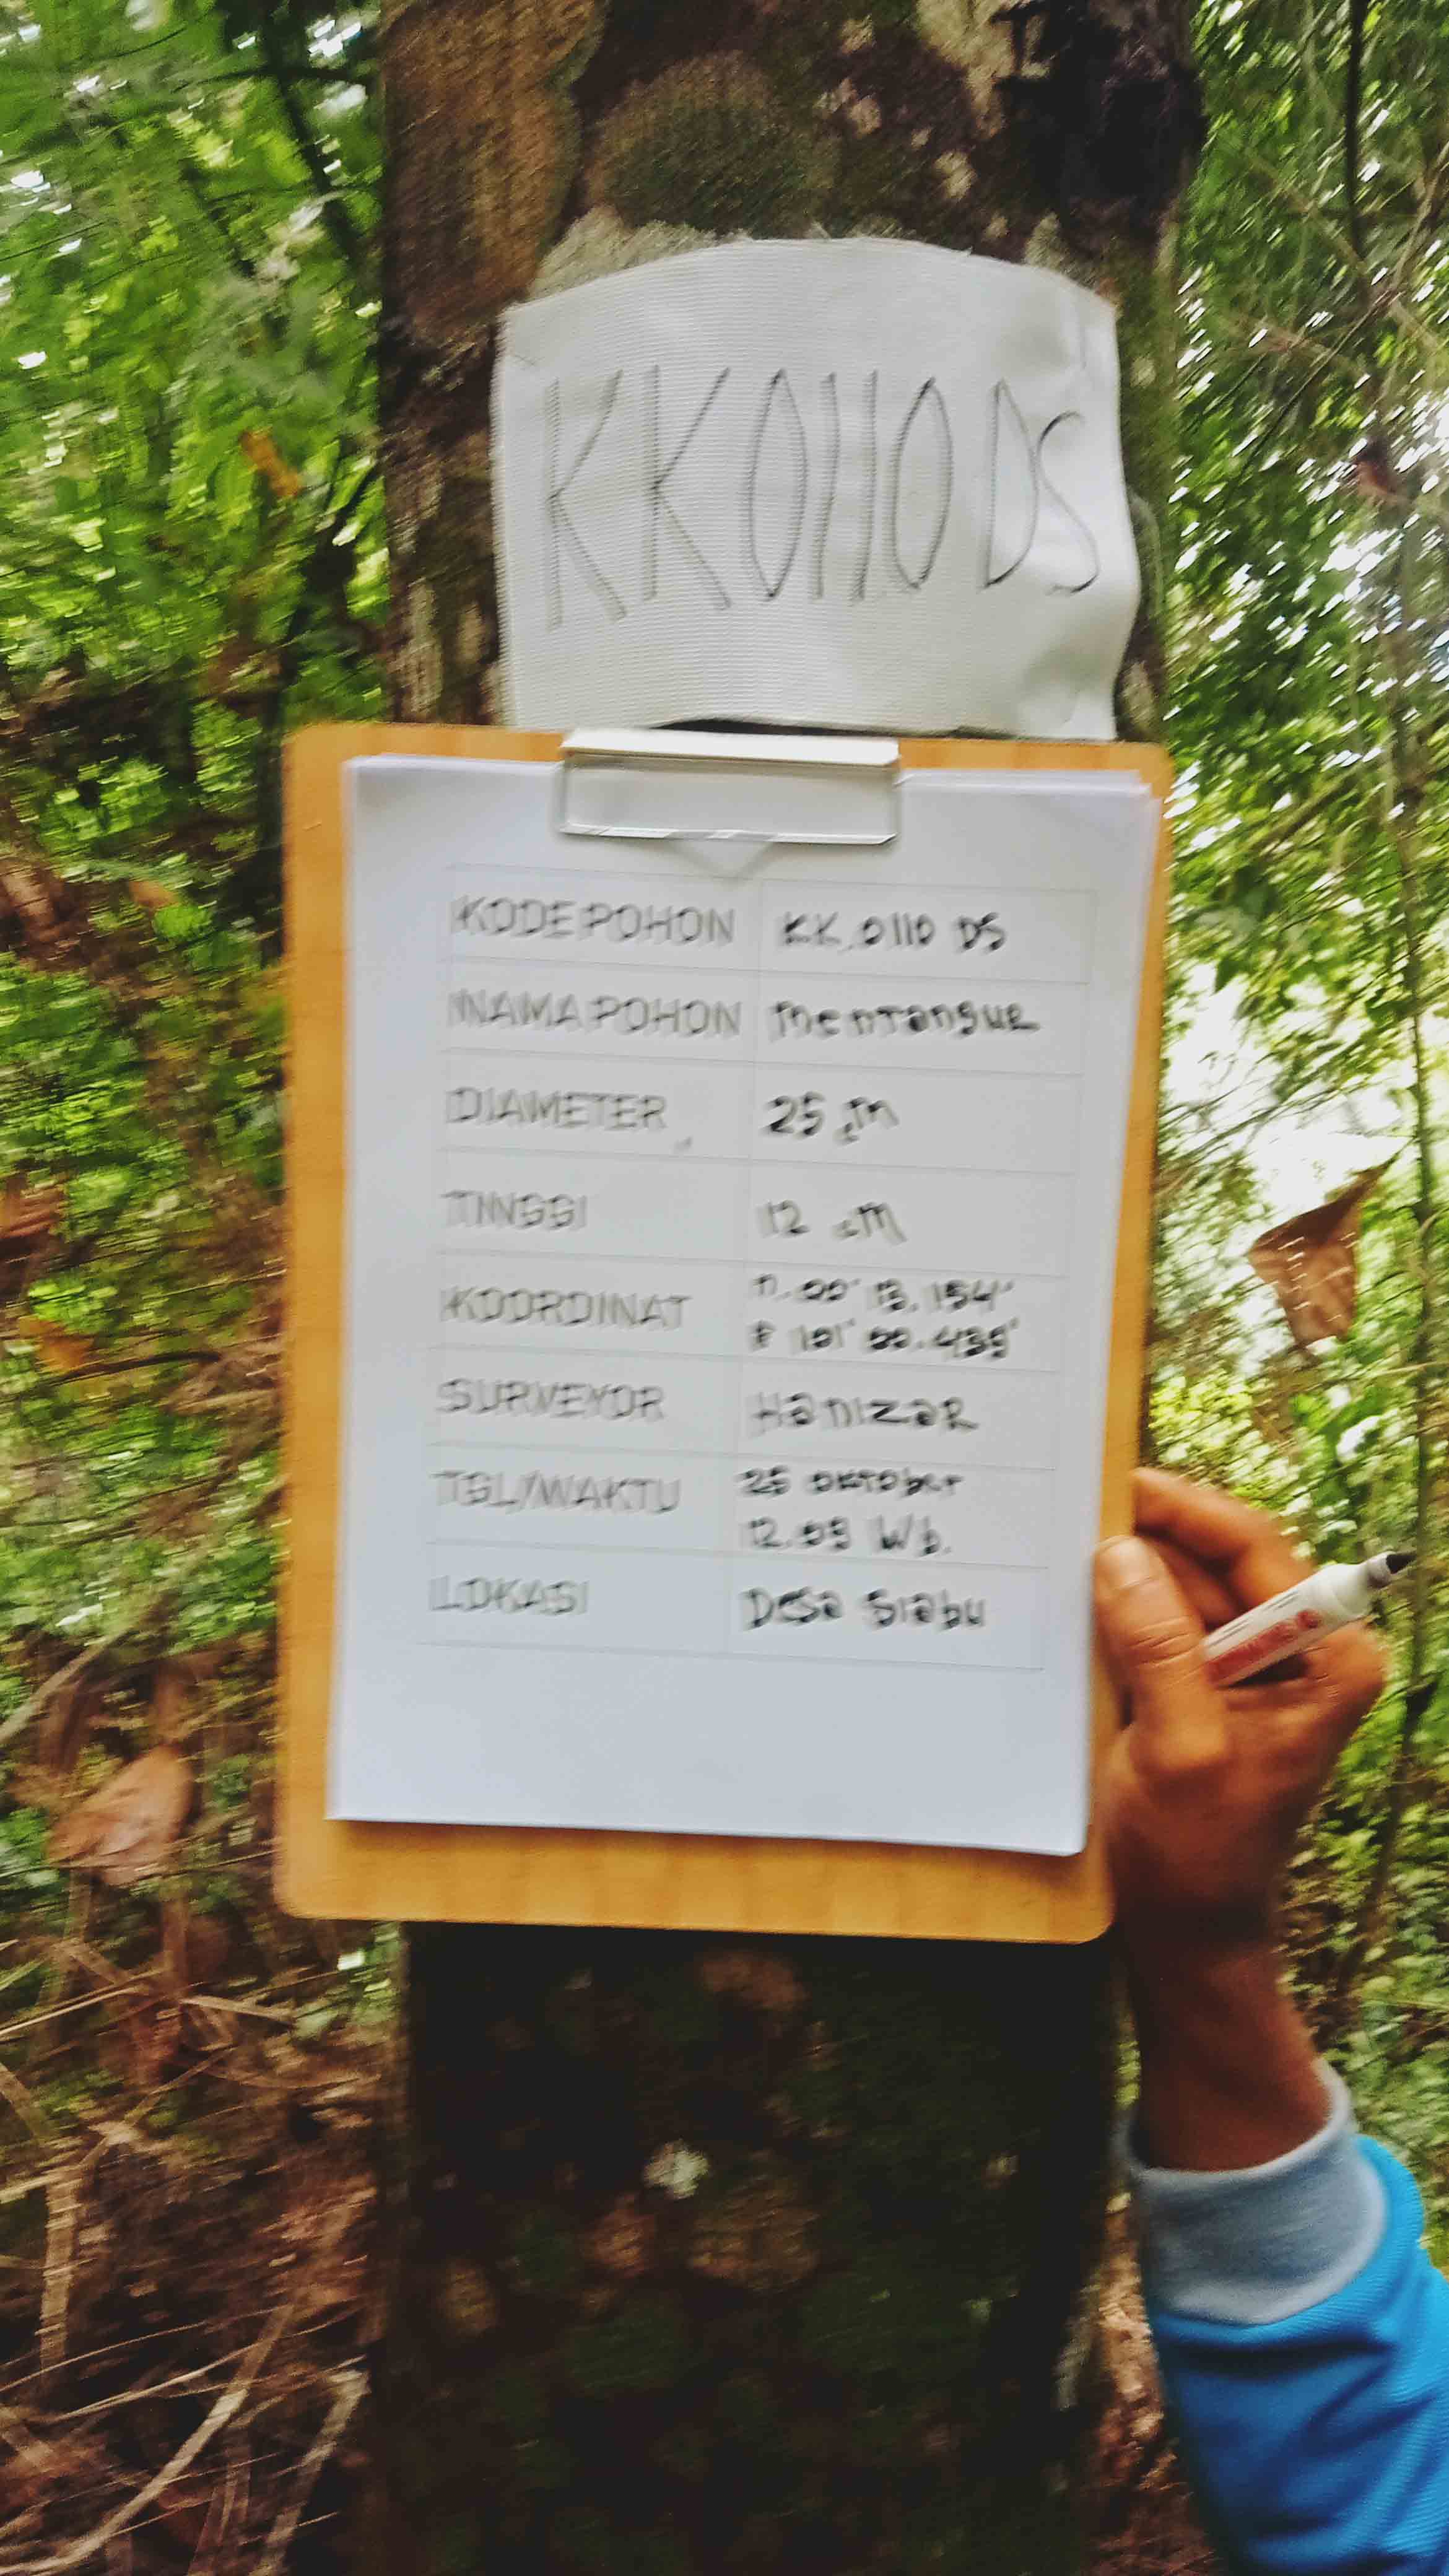 KK0110DS
KODE POHON KK.0110 DS
NAMA POHON mentangur
DIAMETER 25 cm
TINGGI 12 cm
KOORDINAT n. 00° 13. 154'
E 101° 00. 435'
SURVEYOR Hanizar
TGL/WAKTU 25 oktober
12.09 Wb.
LOKASI Desa Siabu